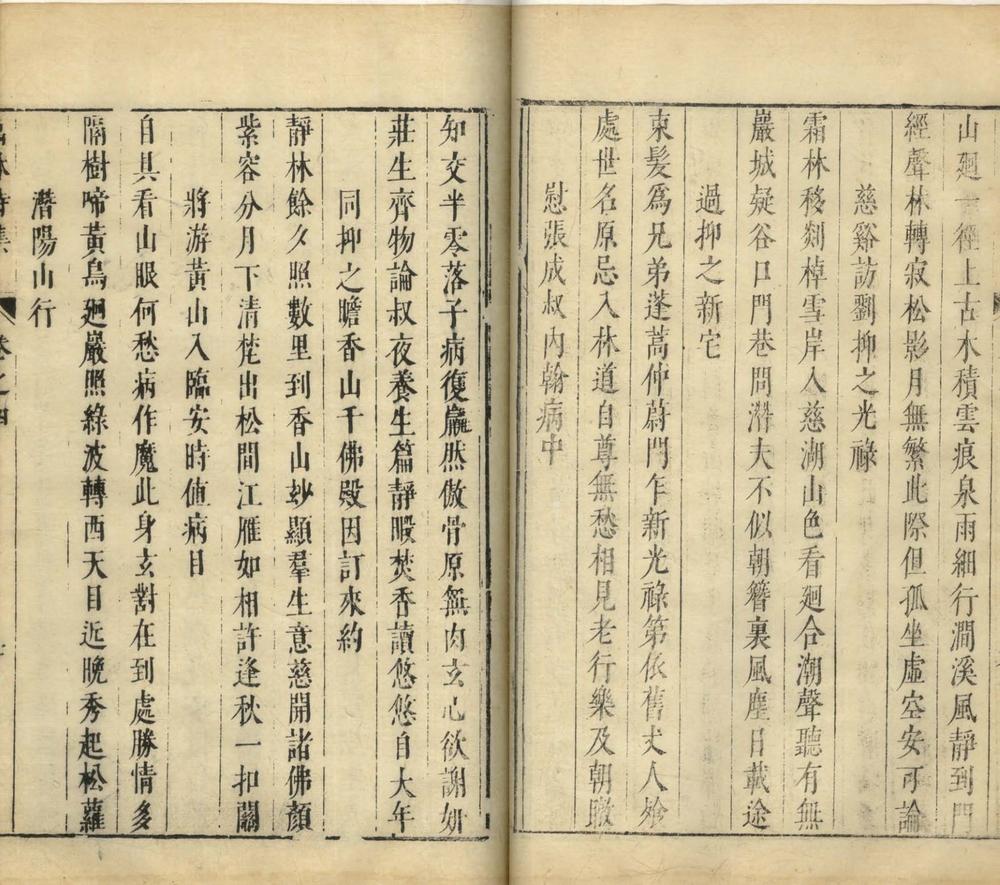 山迴一徑上古木積雲痕泉雨細行澗溪風靜到門
經聲林轉寂松影月無繁此際但孤坐虛空安可論
慈谿訪劉抑之光祿
霜林移剡棹雪岸入慈湖山色看迴合潮聲聽有無
巖城疑谷口門巷問潛夫不似朝簪裏風塵日載途
過抑之新宅
束髮爲兄弟蓬蒿仲蔚門乍新光祿第依舊丈人飱
處世名原忌入林道自尊無愁相見老行樂及朝暾
慰張成叔內翰病中
知交半零落子病復羸然傲骨原無肉玄心欲謝妍
莊生齊物論叔夜養生篇靜暇焚香讀悠悠自大年
同抑之瞻香山千佛殿因訂來約
靜林餘夕照數里到香山妙顯羣生意慈開諸佛顏
紫容分月下清梵出松間江雁如相許逢秋一扣關
將游黃山入臨安時值病目
自具看山眼何愁病作魔此身玄對在到處勝情多
隔樹啼黃鳥迴巖照綠波轉西天目近晚秀起松蘿
潛陽山行
林詩集 卷之四